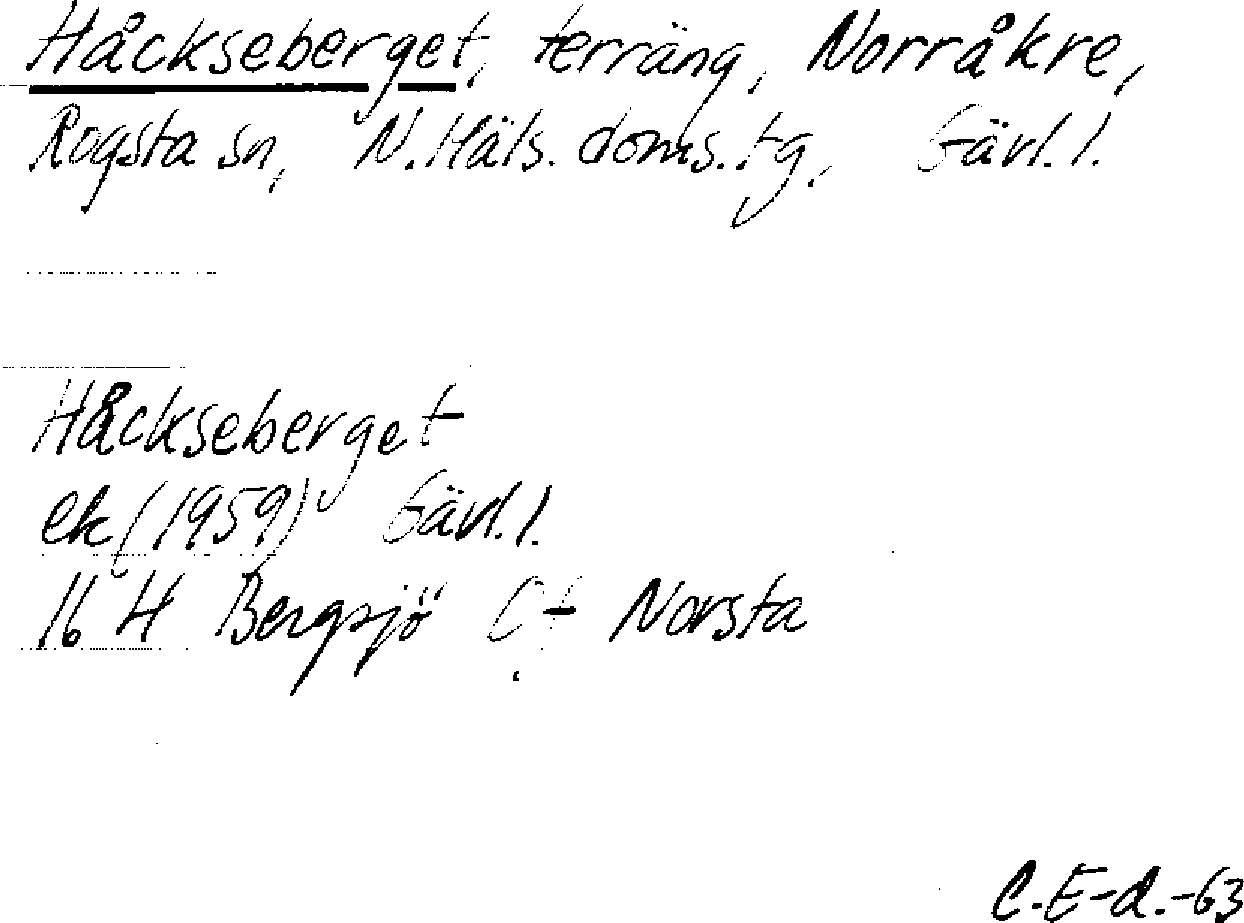 Håckseberget, terräng, Norråkre,
Rogsta sn, N. Häls. doms. tg., Gävl. l.
Håckseberget
ek (1959) Gävl. l.
16 H Bergsjö Norsta
C. E-d. -63